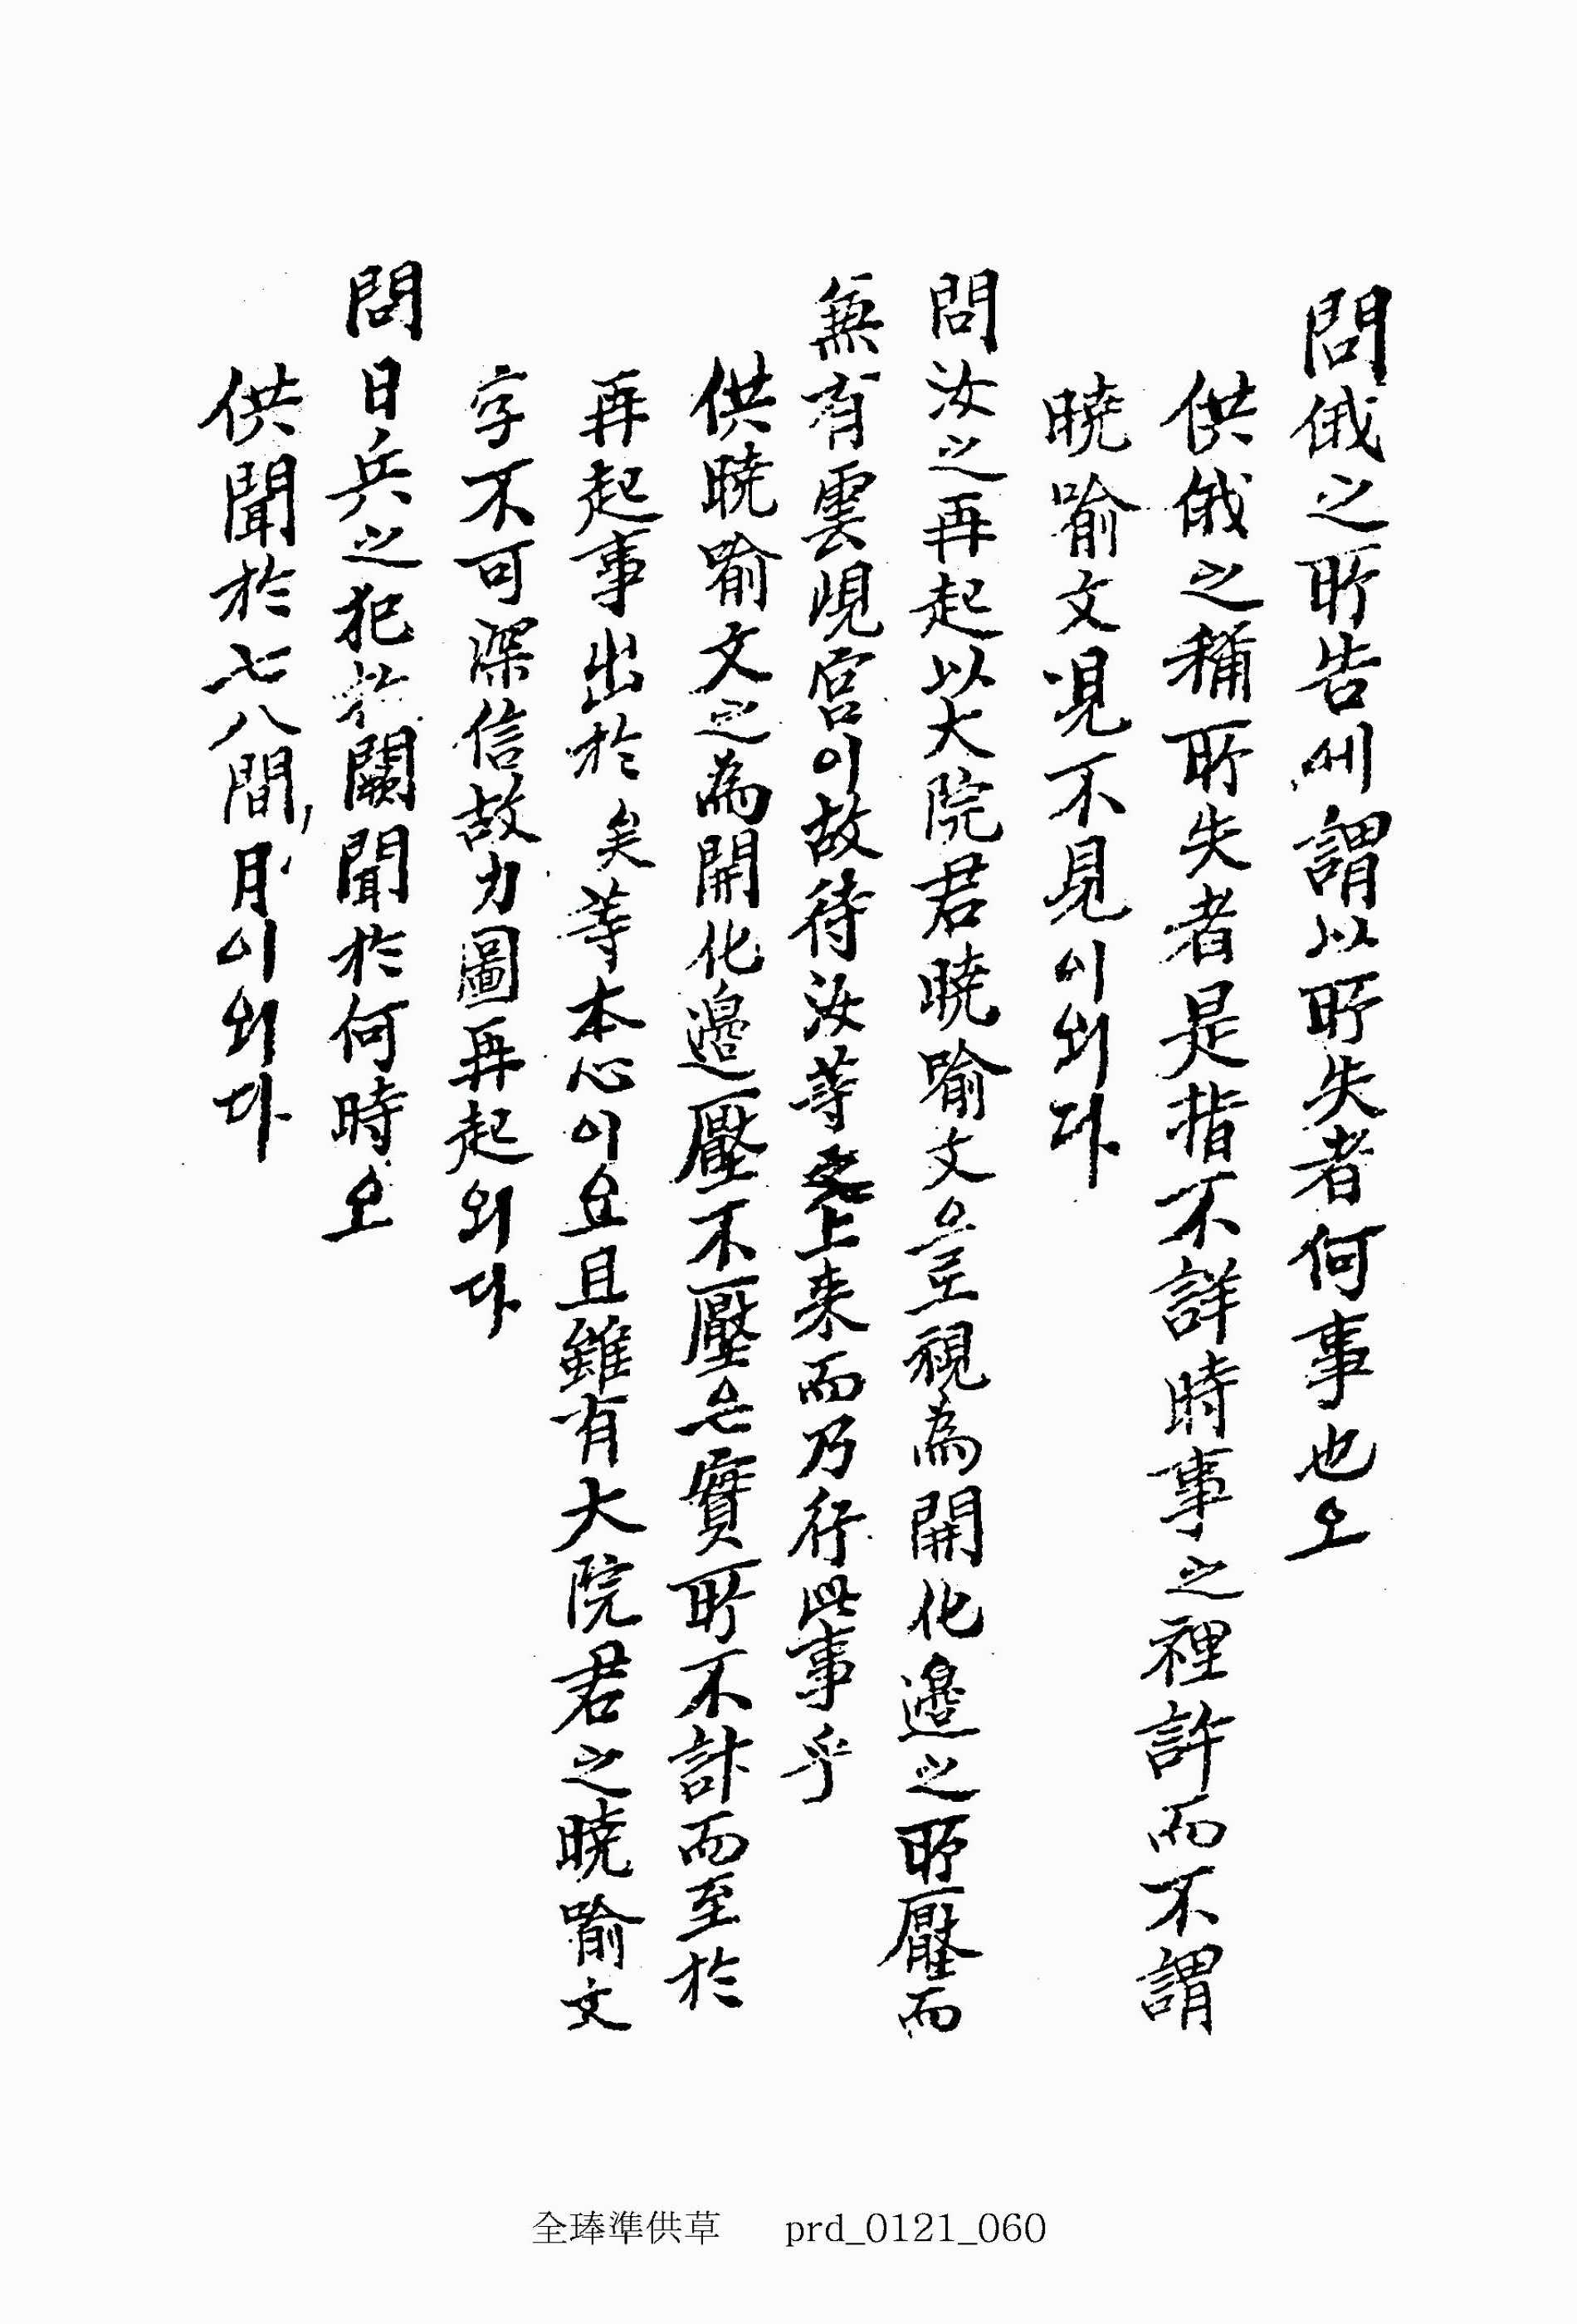 問俄之所告州謂以所失者何事也오
供俄之稱所失者是指不詳時事之裡許而不謂
曉喻文見不見이외다
問汝之再起以大院君曉喻文으로視為開化邊之所壓而
兼有雲峴宮이故待汝等之上来而乃行此事乎
供曉喻文之為開化邊壓不壓은實所不計而至於
再起事出於矣等本心이요且雖有大院君之曉喻文
字不可深信故力圖再起외다
問日兵之犯於闕聞於何時오
供聞於七八間月이외다
全琫準供草 prd_0121_060